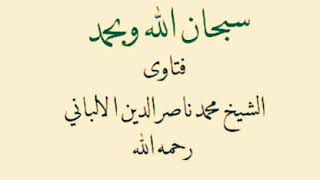 سبحان الله وبحمد
فتاوى
الشيخ محمد ناصر الدين الالباني
رحمه الله